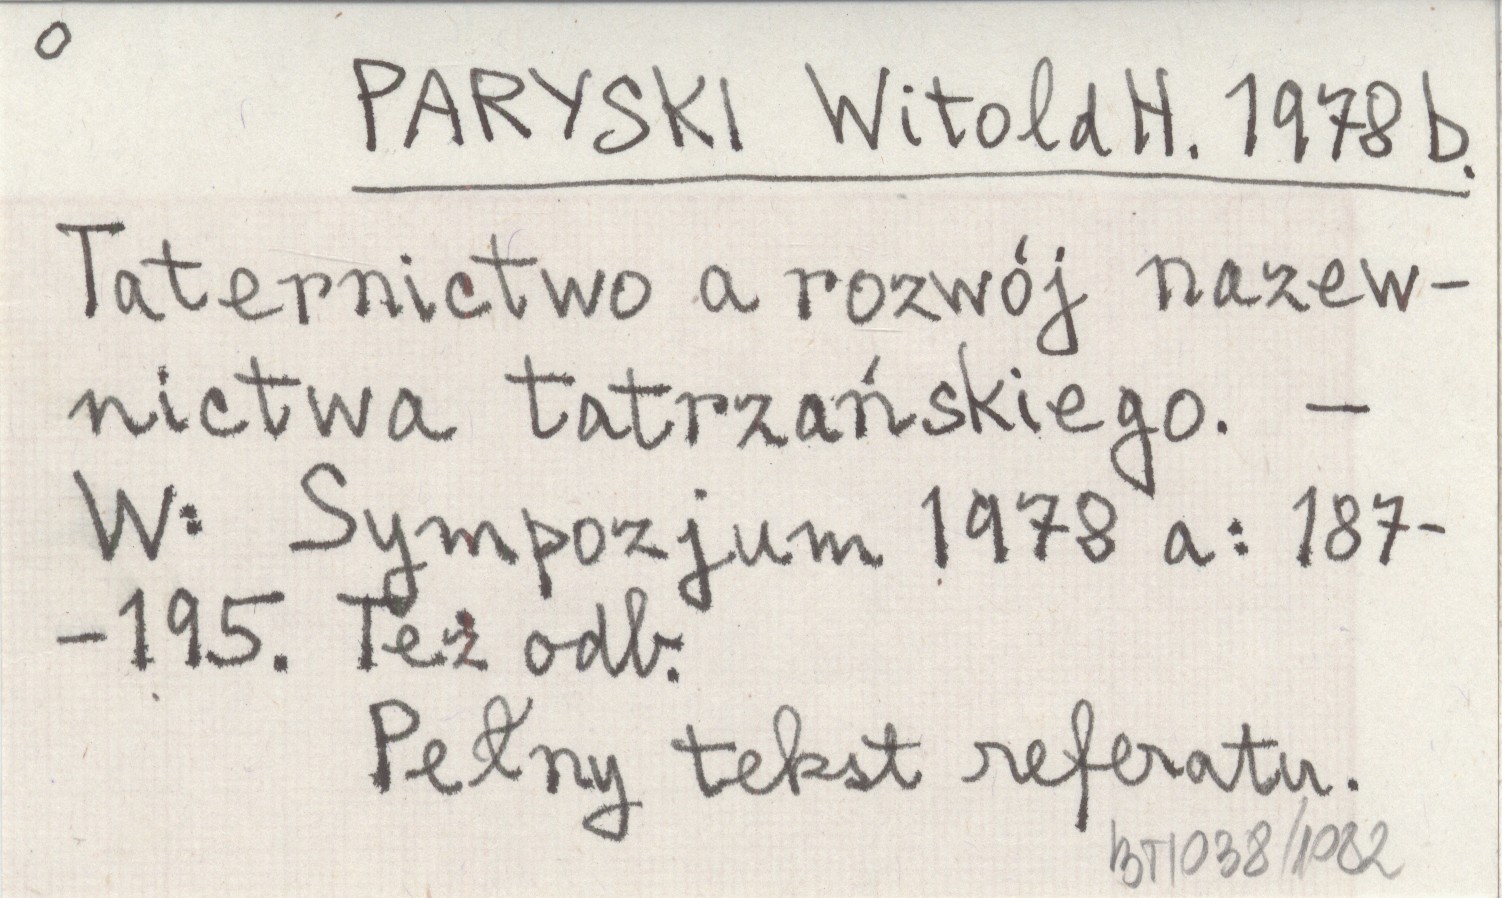 o
PARYSKI Witold H. 1978 b.
Taternictwo a rozwój nazew-
nictwa tatrzańskiego. —
W: Sympozjum 1978 a: 187-
-195. Też odb.
Pełny tekst referatu.
BT1038/1082